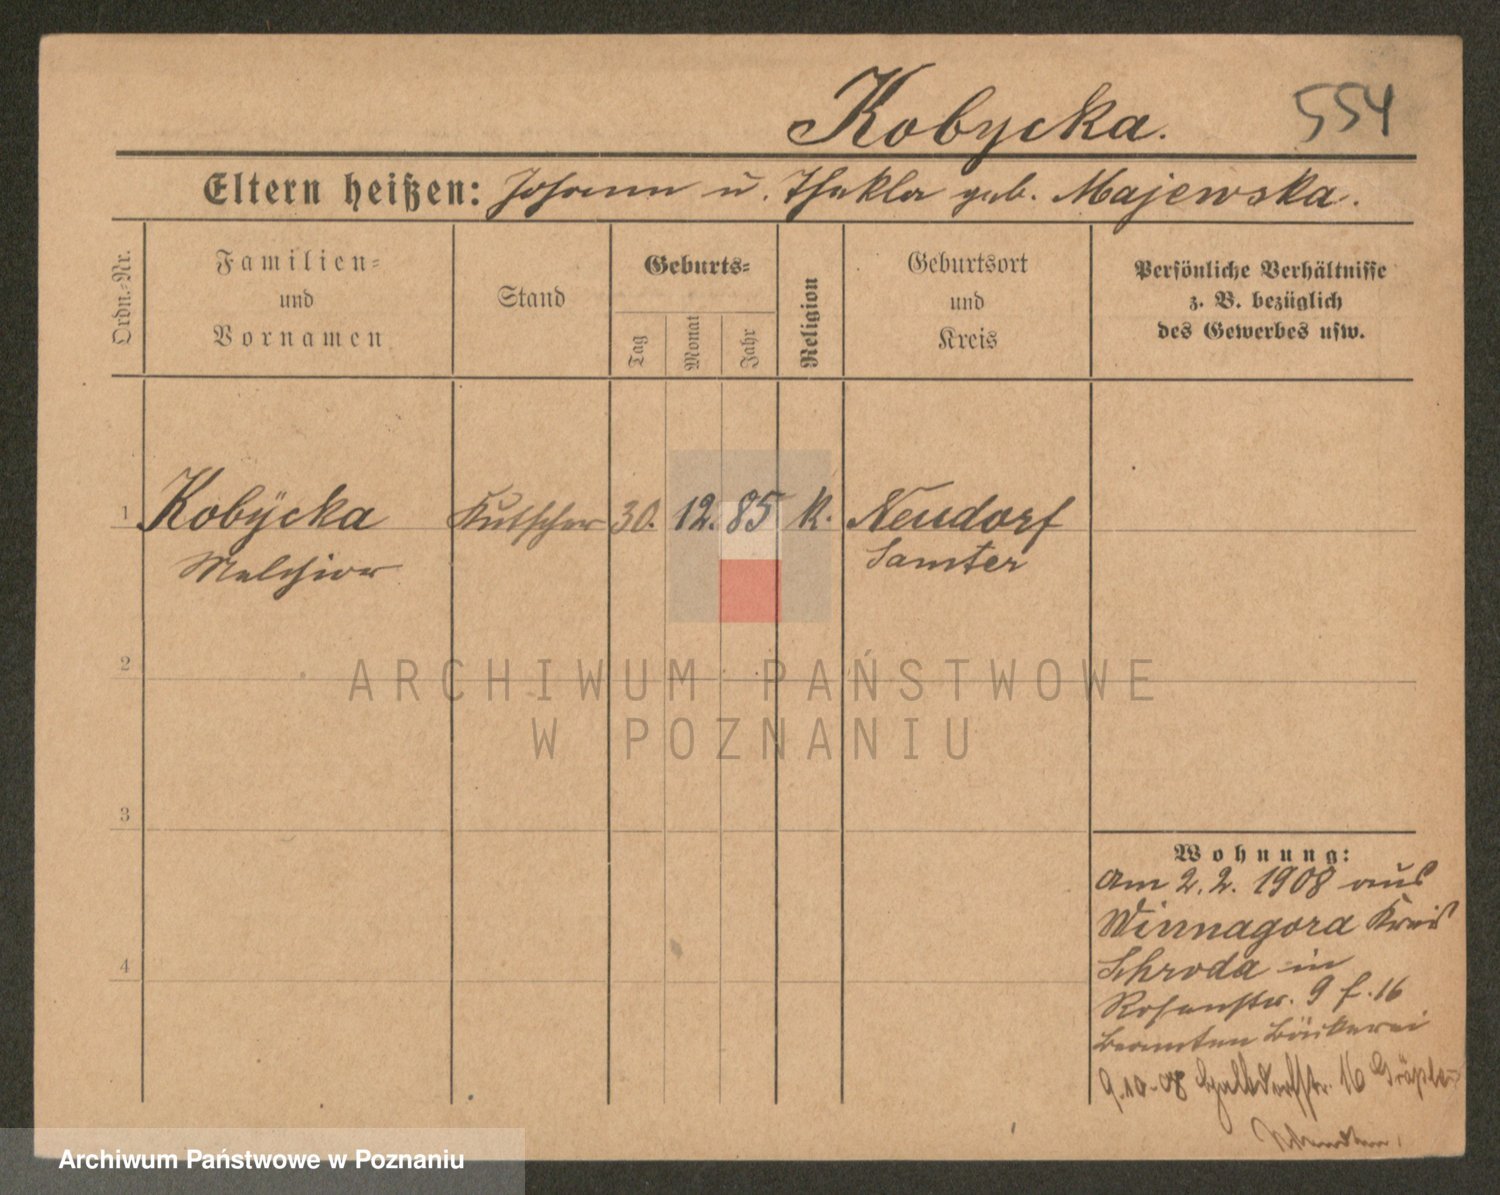 Kobycka.
554
Eltern heißen: Johann u. Thekla geb. Majewska.
Ordn.-Nr.
Familien-
und
Vornamen
Stand
Geburts-
Tag
Monat
Jahr
Religion
Geburtsort
und
Kreis
Persönliche Verhältnisse
z. B. bezüglich
des Gewerbes usw.
1 Kobÿcka Kutscher 30. 12. 85 K. Neudorf
Melchior Samter
2
ARCHIWUM PAŃSTWOWE
W POZNANIU
3
4
Wohnung:
Am 2.2. 1908 aus
Winnagora Kreis
Schroda in
Rosenstr. 9 f. 16
Beamten Bäckerei
9.10-08 16
Archiwum Państwowe w Poznaniu